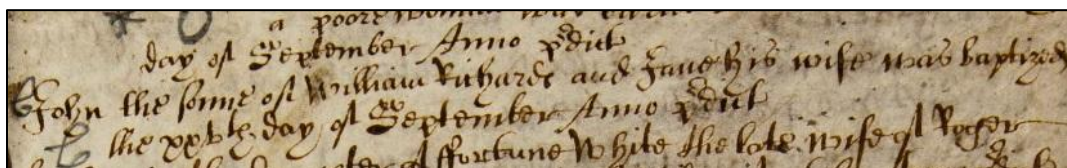 a poore woman was
day of September Anno p'dict
John the sonne of William Richards and Jane his wife was baptized
the xxvth day of September Anno p'dict
of ffortune White the late wife of Roger